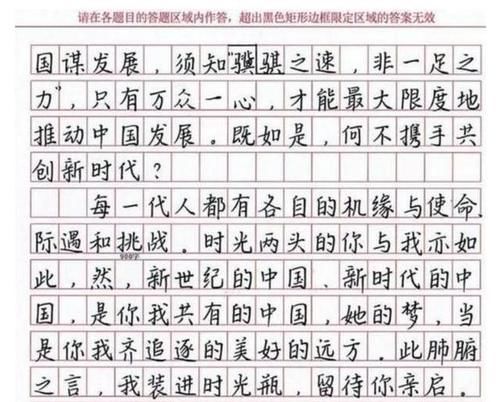 请在各题目的答题区域内作答，超出黑色矩形边框限定区域的答案无效
国谋发展，须知"骥骐之速，非一足之
力"，只有万众一心，才能最大限度地
推动中国发展。既如是，何不携手共
创新时代？
每一代人都有各自的机缘与使命、
际遇和挑战。时光两头的你与我亦如
900字
此，然，新世纪的中国、新时代的中
国，是你我共有的中国，她的梦，当
是你我齐追逐的美好的远方。此肺腑
之言，我装进时光瓶，留待你亲启。